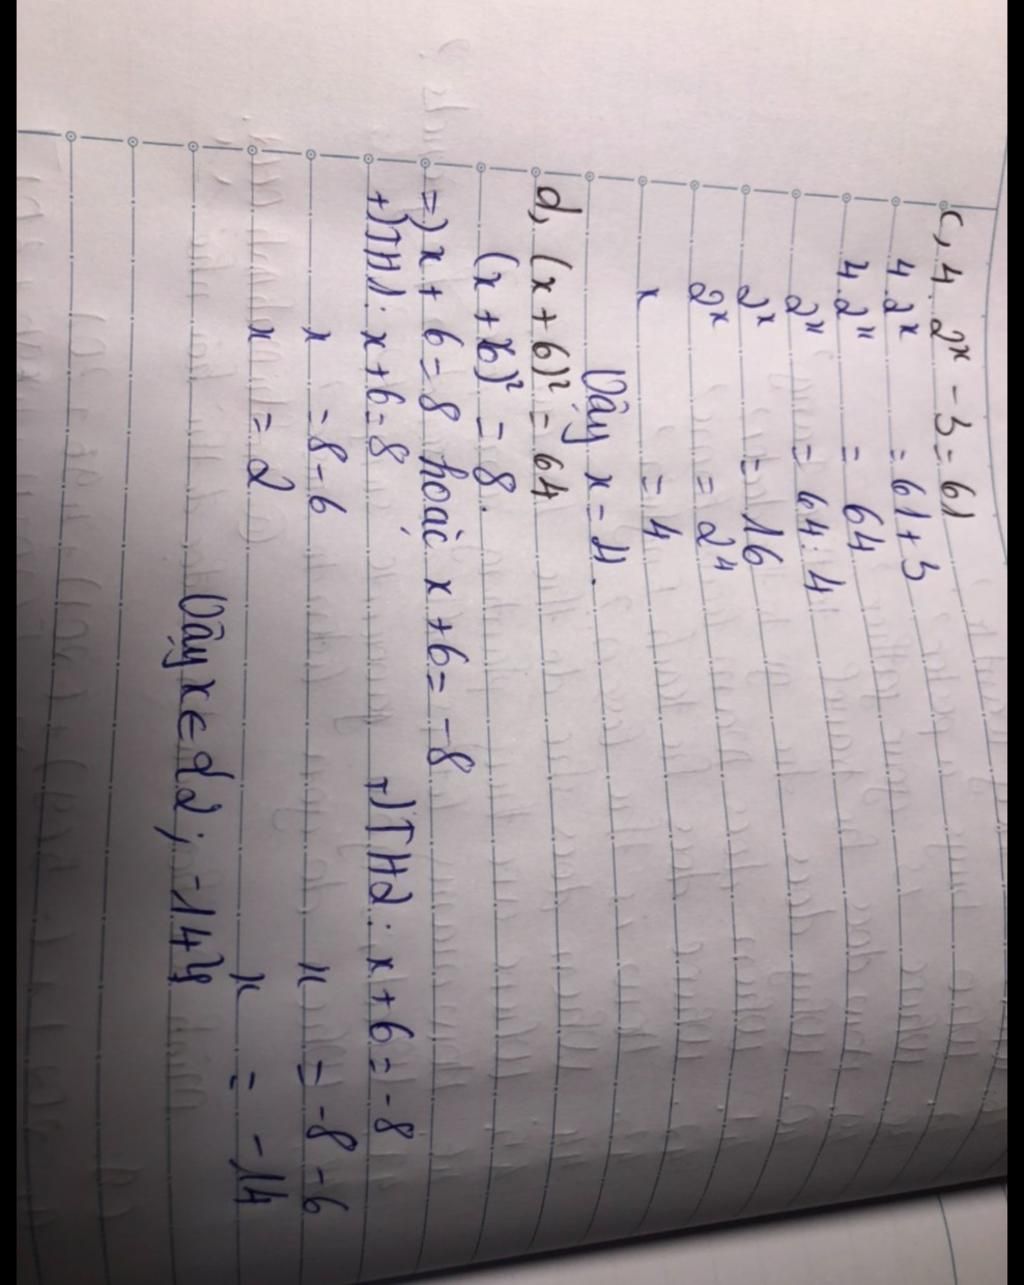 c, 4. 2ˣ - 3 = 61
4. 2ˣ = 61 + 3
4. 2ˣ = 64
2ˣ = 64 : 4
2ˣ = 16
2ˣ = 2⁴
x = 4
Vậy x = 4.
d, (x + 6)² = 64
(x + 6)² = 8.
=) x + 6 = 8 hoặc x + 6 = -8
+) TH1: x + 6 = 8 +) TH2: x + 6 = -8
x = 8 - 6 x = -8 - 6
x = 2 x = -14
Vậy x ∈ {2; -14}